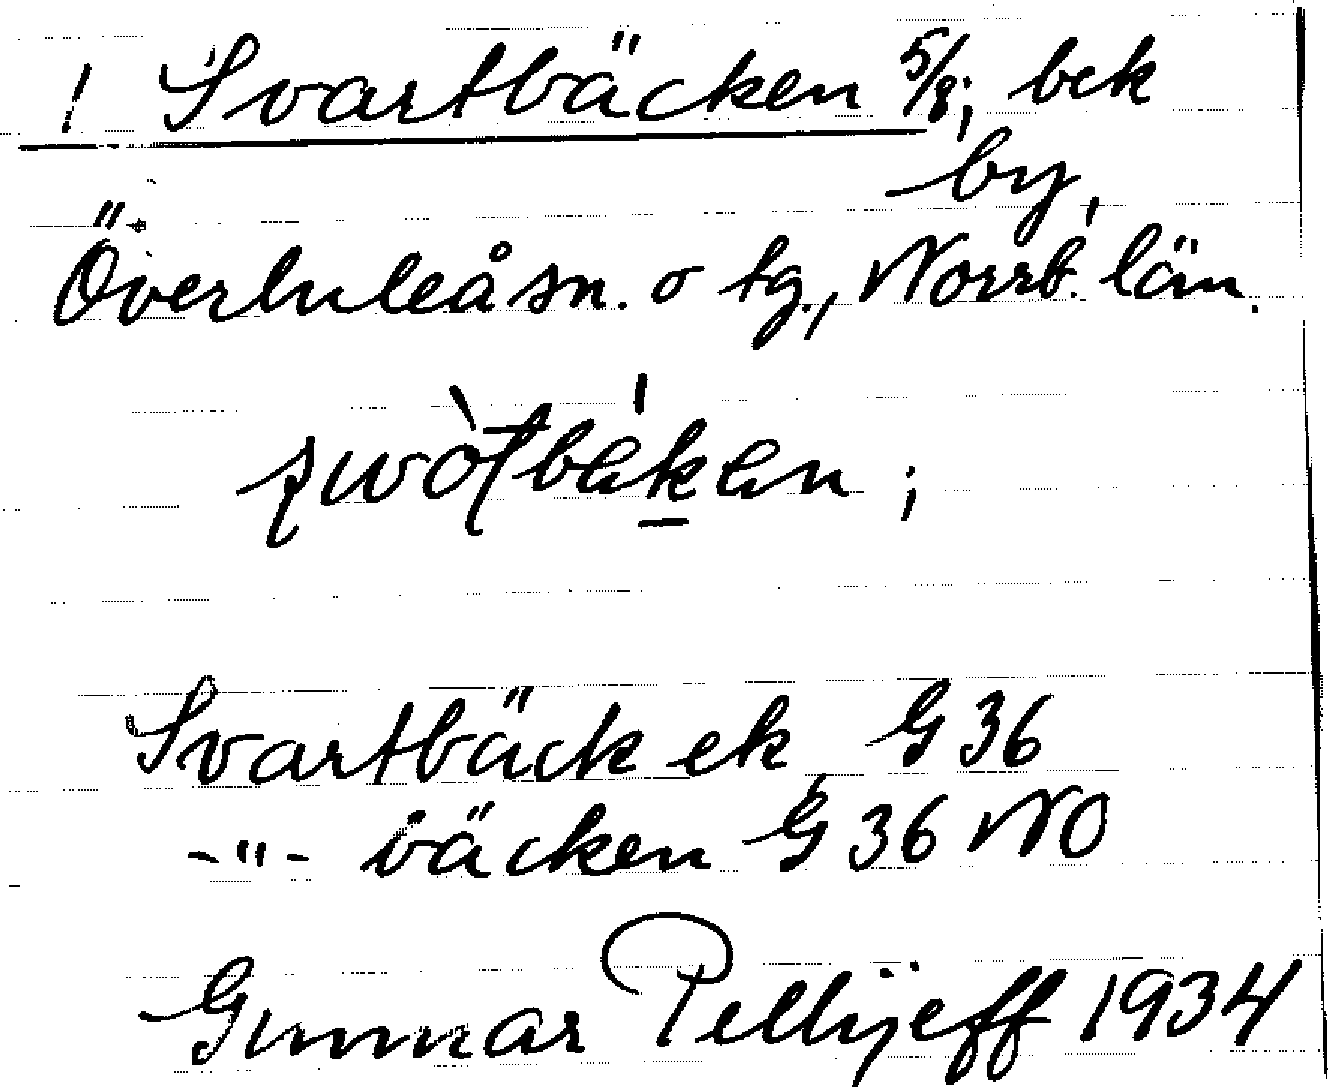 ! Svartbäcken 5/8; bek
by,
Överluleå sn. o tg., Norrb. län.
Svartbäck ek G 36
-"- bäcken G 36 NO
Gunnar Pellijeff 1934